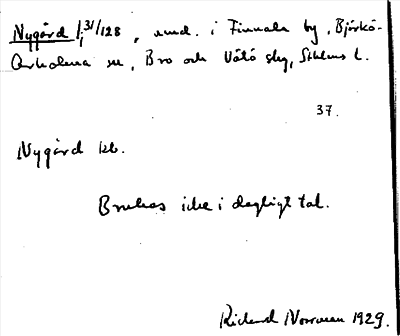 Nygård 1:31/128, und. i Finnala by, Björkö-
Arholma sn, Bro och Vätö skg, Sthlms l.
37.
Nygård kb.
Brukas icke i dagligt tal.
Rickard Norrman 1929.